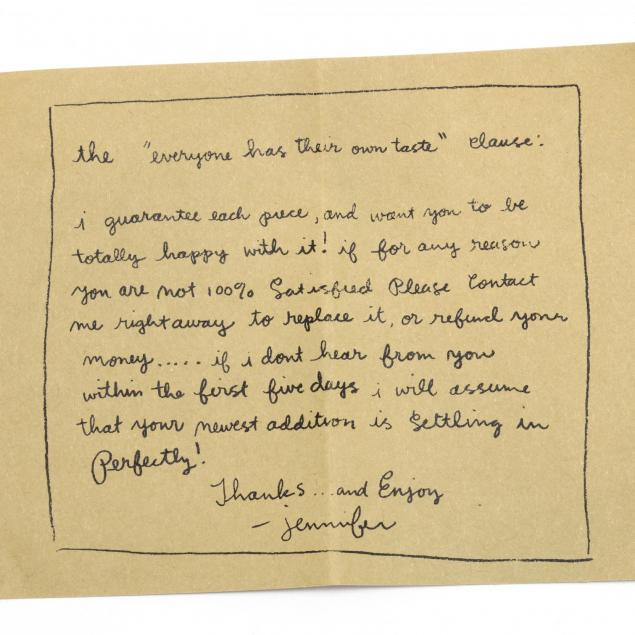 the "everyone has their own taste" clause:
i guarantee each piece, and want you to be
totally happy with it! if for any reason
you are not 100% Satisfied Please Contact
me right away to replace it, or refund your
money..... if i dont hear from you
within the first five days i will assume
that your newest addition is Settling in
Perfectly!
Thanks...and Enjoy
- jennifer